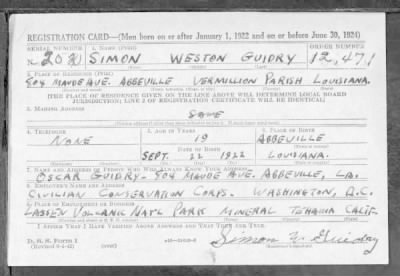 REGISTRATION CARD—(Men born on or after January 1, 1922 and on or before June 30, 1924)
SERIAL NUMBER 1. NAME (Print) ORDER NUMBER
SIMON WESTON GUIDRY 12,471
2. PLACE OF RESIDENCE (Print)
804 MAUDE AVE. ABBEVILLE VERMILLION PARISH LOUISIANA.
[THE PLACE OF RESIDENCE GIVEN ON THE LINE ABOVE WILL DETERMINE LOCAL BOARD
JURISDICTION; LINE 2 OF REGISTRATION CERTIFICATE WILL BE IDENTICAL]
3. MAILING ADDRESS
SAME
4. TELEPHONE 5. AGE IN YEARS 6. PLACE OF BIRTH
NONE 19 ABBEVILLE
DATE OF BIRTH
SEPT. 22 1922 LOUISIANA.
7. NAME AND ADDRESS OF PERSON WHO WILL ALWAYS KNOW YOUR ADDRESS
OSCAR GUIDRY - 804 MAUDE AVE. ABBEVILLE, LA.
8. EMPLOYER'S NAME AND ADDRESS
CIVILIAN CONSERVATION CORPS. WASHINGTON, D.C.
9. PLACE OF EMPLOYMENT OR BUSINESS
LASSEN VOLCANIC NAT'L PARK MINERAL TEHAMA CALIF.
I AFFIRM THAT I HAVE VERIFIED ABOVE ANSWERS AND THAT THEY ARE TRUE.
D. S. S. Form 1
Simon W. Guidry